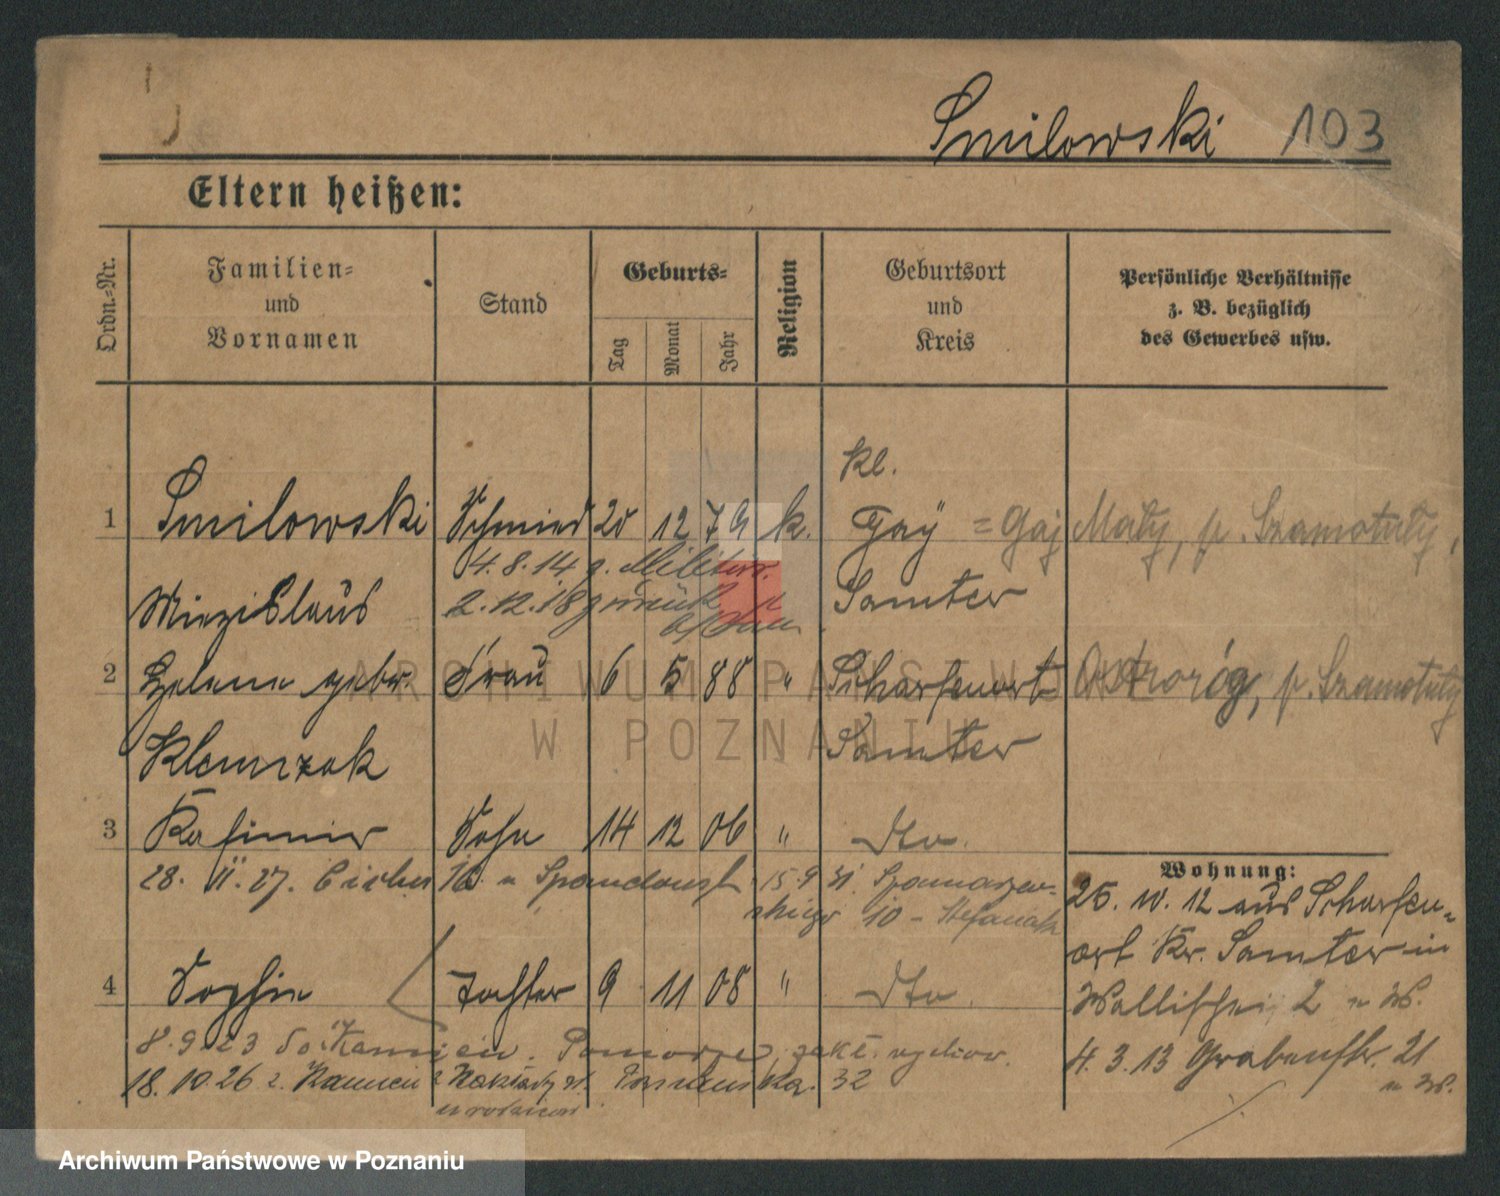 Smilowski 103
Eltern heißen:
Ordn.=Nr.
Familien=
und
Vornamen
Stand
Geburts=
Tag
Monat
Jahr
Religion
Geburtsort
und
Kreis
Persönliche Verhältnisse
z. B. bezüglich
des Gewerbes usw.
kl.
1 Smilowski Schmied 20 12 79 k. Gaÿ = Gaj Mały, p. Szamotuły,
4.8.14 z. Militär.
Miezislaus 2.12.18 zurück Samter
2 Helene gebr. Frau 6 5 88 " Scharfenort Ostroróg, p. Szamotuły
Klemczak Samter
3 Kasimir Sohn 14 12 06 " dto.
28. II. 27. 16. u Spandaust 15.9 31.
10 - Stefaniak
Wohnung:
25. 10. 12 aus Scharfen=
ort Kr. Samter in
Wallischei 2 u W.
4. 3. 13 Grabenstr. 21
u W.
4 Sophie Tochter 9 11 08 " dto.
8.9.23 do Kamień. Pomorze, zakł.
18.10.26 z. Kamień 32
ARCHIWUM PAŃSTWOWE
W POZNANIU
Archiwum Państwowe w Poznaniu